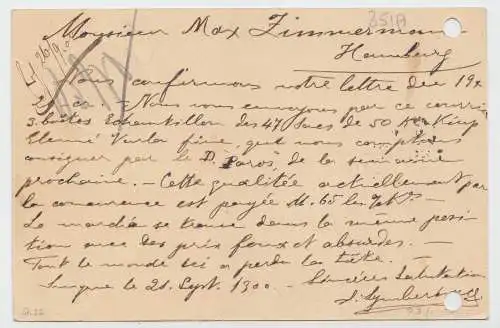 351A
Monsieur Max Zimmermann
Hamburg
Nous confirmons notre lettre du 19 &
20 co. — Nous vous envoyons par ce courrier
3 boîtes Echantillon des 47 Sacs de 50
fine, que nous comptons
consigner par le D. "Paros" de la semaine
prochaine. — Cette qualitée actuellement par
la concurrence est payée M. 65 les
Le marché se trouve dans la même posi
tion avec des prix fous et absurdes. —
Tout le monde ici a perdu la tête. —
le 21 Sept. 1900. — Sincères Salutations